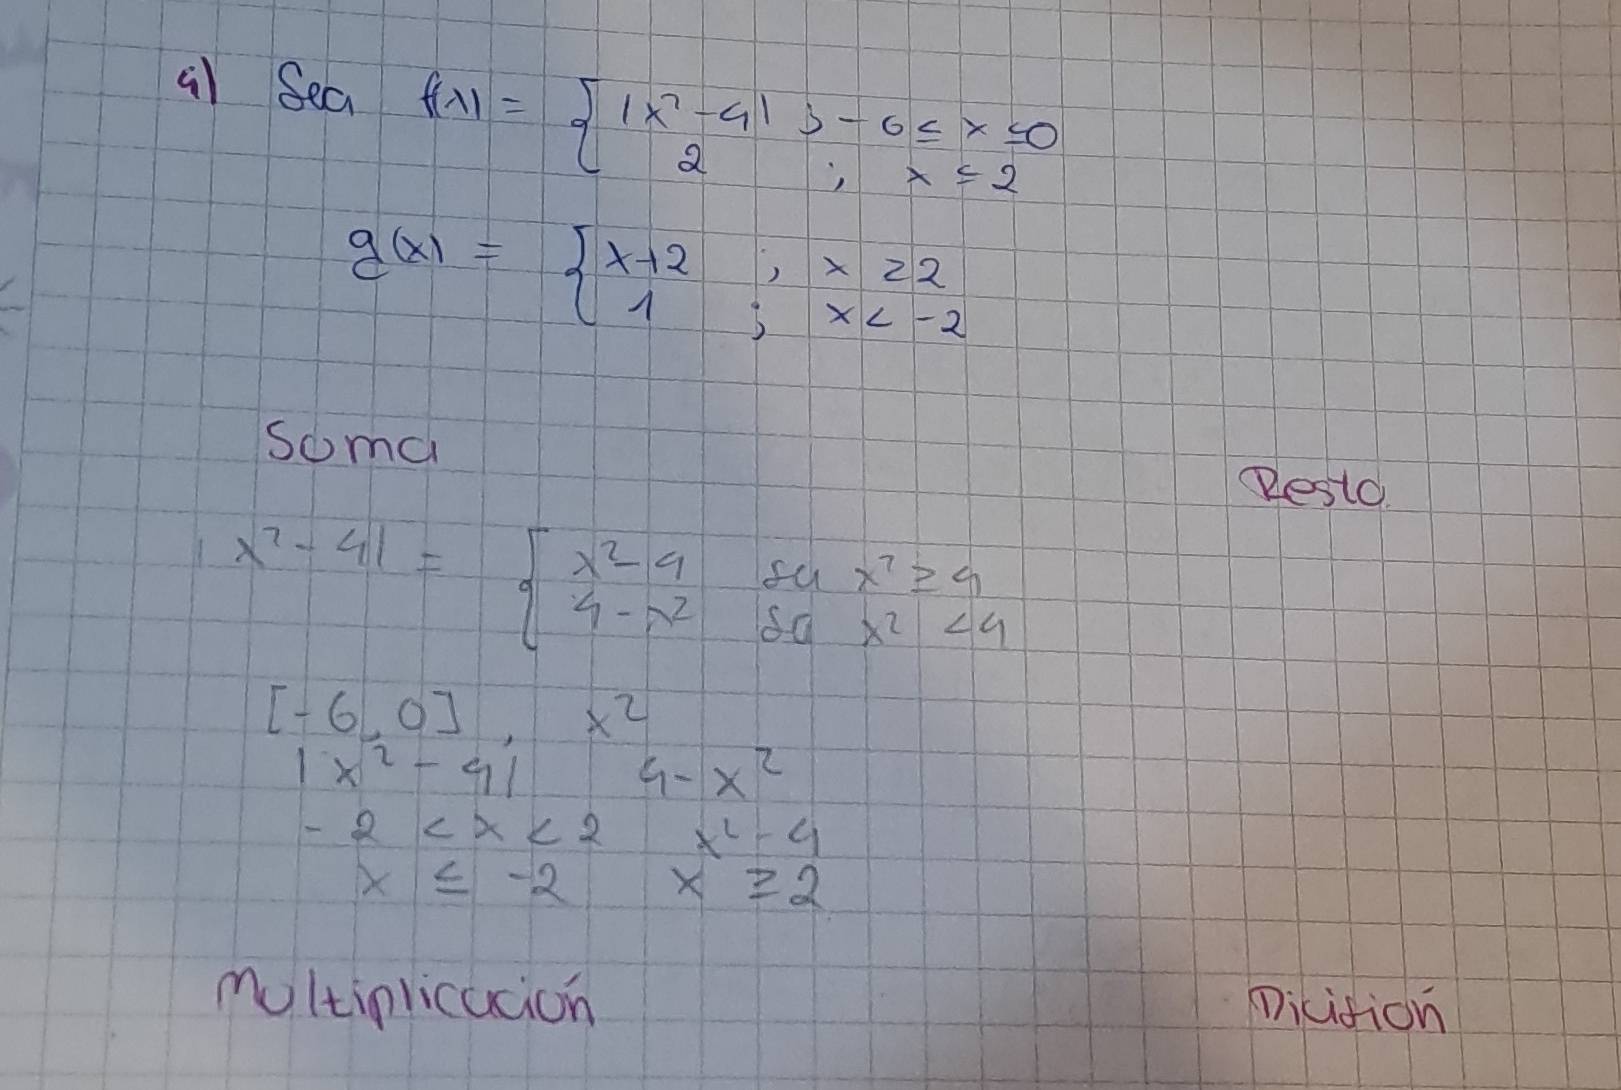 4) Sea f(x) = { |x² - 4| ; -6 ≤ x ≤ 0
2 ; x ≤ 2
g(x) = { x+2 ; x ≥ 2
1 ; x < -2
Suma
Resta
|x² - 4| = { x² - 4 sa x² ≥ 4
4 - x² sa x² < 4
[-6, 0], x²
|x² - 4| 4 - x²
-2 < x < 2 x² - 4
x ≤ -2 x ≥ 2
Multiplicación
Dicisión